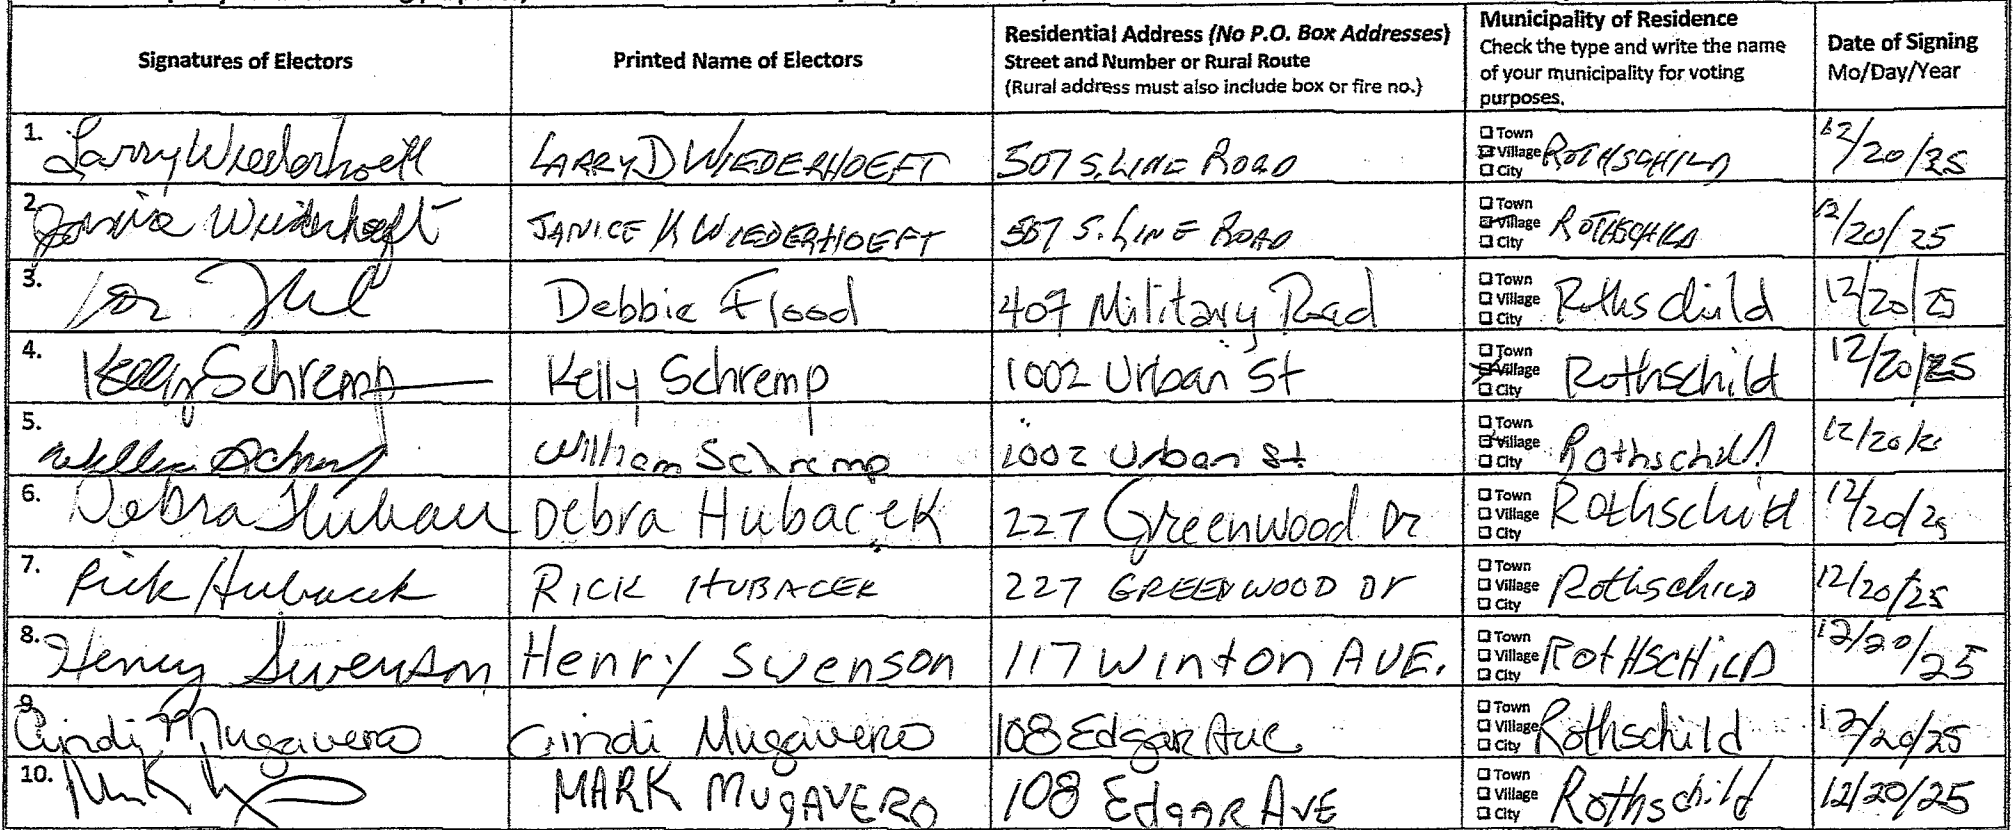 Signatures of Electors
Printed Name of Electors
Residential Address (No P.O. Box Addresses)
Street and Number or Rural Route
(Rural address must also include box or fire no.)
Municipality of Residence
Check the type and write the name
of your municipality for voting
purposes.
Date of Signing
Mo/Day/Year
1. Larry Wiederhoeft LARRY D WIEDERHOEFT 507 S. LINE ROAD ☐ Town ☒ Village ☐ City ROTHSCHILD 12/20/25
2. Janice Wiederhoeft JANICE K WIEDERHOEFT 507 S. LINE ROAD ☐ Town ☒ Village ☐ City ROTHSCHILD 12/20/25
3. Debbie Flood 407 Military Road ☐ Town ☐ Village ☐ City Rothschild 12/20/25
4. Kelly Schremp Kelly Schremp 1002 Urban St ☐ Town ☒ Village ☐ City Rothschild 12/20/25
5. William Schremp 1002 Urban St ☐ Town ☒ Village ☐ City Rothschild 12/20/
6. Debra Hubacek Debra Hubacek 227 Greenwood Dr ☐ Town ☐ Village ☐ City Rothschild 12/20/25
7. Rick Hubacek RICK HUBACEK 227 GREENWOOD Dr ☐ Town ☐ Village ☐ City Rothschild 12/20/25
8. Henry Swenson Henry Swenson 117 Winton AVE. ☐ Town ☐ Village ☐ City ROTHSCHILD 12/20/25
9. Cindi Mugavero Cindi Mugavero 108 Edgar Ave ☐ Town ☐ Village ☐ City Rothschild 12/20/25
10. MARK MUGAVERO 108 Edgar AVE ☐ Town ☐ Village ☐ City Rothschild 12/20/25